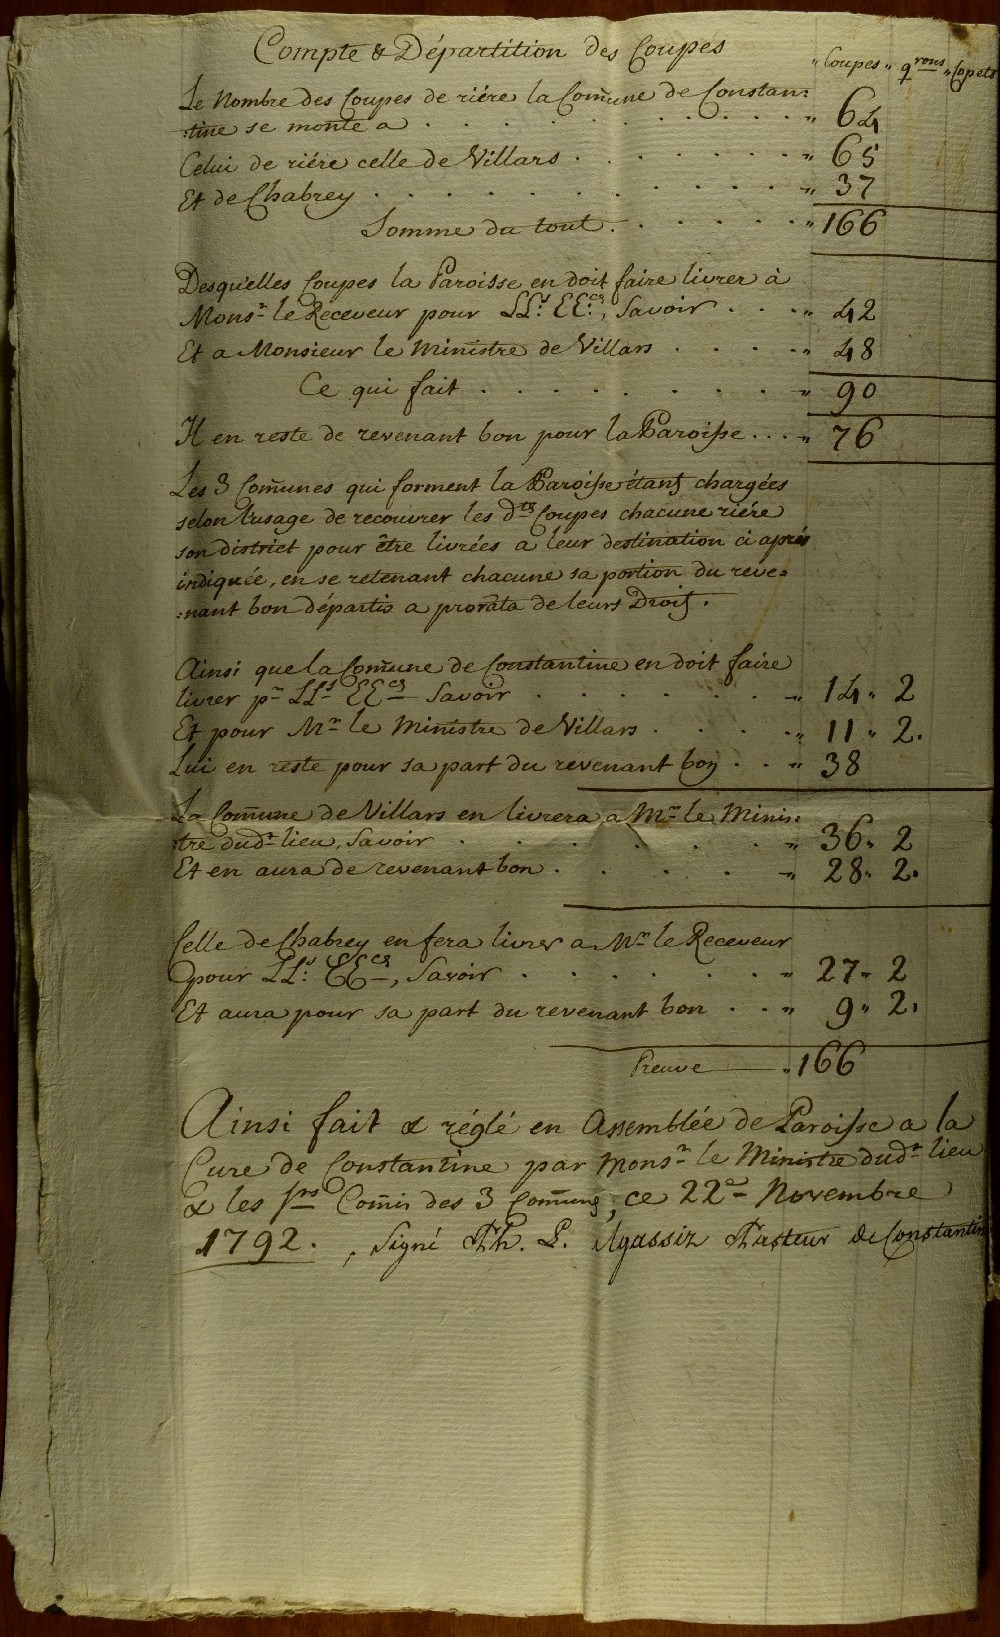 Compte & Départition des Coupes
" Coupes " q.rons " Copets
Le Nombre des Coupes de riére la Com̃une de Constan:
:tine se monte a . . . . . . . . . " 64
Celui de riére celle de Villars . . . . . . " 65
Et de Chabrey . . . . . . . . . . " 37
Somme du tout . . . . . . " 166
Desquelles Coupes la Paroisse en doit faire livrer à
Mons.r le Receveur pour LL.s EE.ces, Savoir . . . . " 42
Et a Monsieur le Ministre de Villars . . . . . " 48
Ce qui fait . . . . . . . . " 90
Il en reste de revenant bon pour la Paroisse . . . " 76
Les 3 Com̃unes qui forment la Paroisse étant chargées
selon l'usage de recouvrer les d.tes Coupes chacune riére
son district pour être livrées a leur destination ci après
indiquée, en se retenant chacune sa portion du reve=
:nant bon départis a prorata de leurs Droits.
Ainsi que la Com̃une de Constantine en doit faire
livrer p.r LL.s EE.ces Savoir . . . . . . " 14 " 2
Et pour M.r le Ministre de Villars . . . . . " 11 " 2.
Lui en reste pour sa part du revenant bon . . " 38
La Com̃une de Villars en livrera a M.r le Minis:
:tre dud.t lieu, Savoir . . . . . . . " 36 " 2
Et en aura de revenant bon . . . . . " 28 " 2.
Celle de Chabrey en fera livrer a M.r le Receveur
pour LL.s EE.ces, Savoir . . . . . . " 27 " 2
Et aura pour sa part du revenant bon . . " 9 " 2.
Preuve " 166
Ainsi fait & réglé en Assemblée de Paroisse a la
Cure de Constantine par Mons.r le Ministre dud.t lieu
& les S.rs Com̃is des 3 Com̃unes, ce 22.e Novembre
1792. , Signé Ph. L. Agassiz Pasteur de Constantine